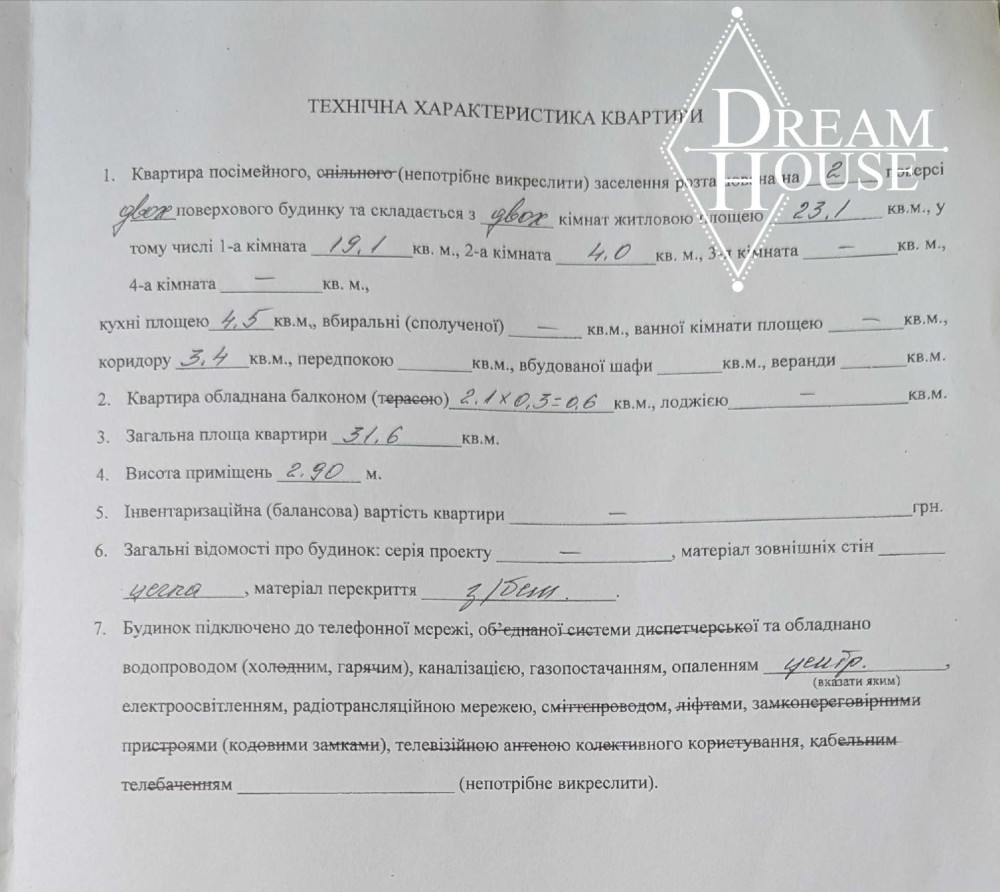 DREAM
HOUSE
ТЕХНІЧНА ХАРАКТЕРИСТИКА КВАРТИРИ
1. Квартира посімейного, спільного (непотрібне викреслити) заселення розташована на 2 поверсі
двох поверхового будинку та складається з двох кімнат житловою площею 23,1 кв.м., у
тому числі 1-а кімната 19,1 кв. м., 2-а кімната 4,0 кв. м., 3-я кімната — кв. м.,
4-а кімната — кв. м.,
кухні площею 4,5 кв.м,, вбиральні (сполученої) — кв.м., ванної кімнати площею — кв.м.,
коридору 3,4 кв.м., передпокою ______ кв.м., вбудованої шафи ______ кв.м., веранди ______ кв.м.
2. Квартира обладнана балконом (терасою) 2.1 х 0,3 = 0,6 кв.м., лоджією — кв.м.
3. Загальна площа квартири 31,6 кв.м.
4. Висота приміщень 2.90 м.
5. Інвентаризаційна (балансова) вартість квартири — грн.
6. Загальні відомості про будинок: серія проекту — , матеріал зовнішніх стін ______
цегла , матеріал перекриття з/бет. .
7. Будинок підключено до телефонної мережі, об’єднаної системи диспетчерської та обладнано
водопроводом (холодним, гарячим), каналізацією, газопостачанням, опаленням центр. ,
(вказати яким)
електроосвітленням, радіотрансляційною мережею, сміттєпроводом, ліфтами, замкопереговірними
пристроями (кодовими замками), телевізійною антеною колективного користування, кабельним
телебаченням ______ (непотрібне викреслити).